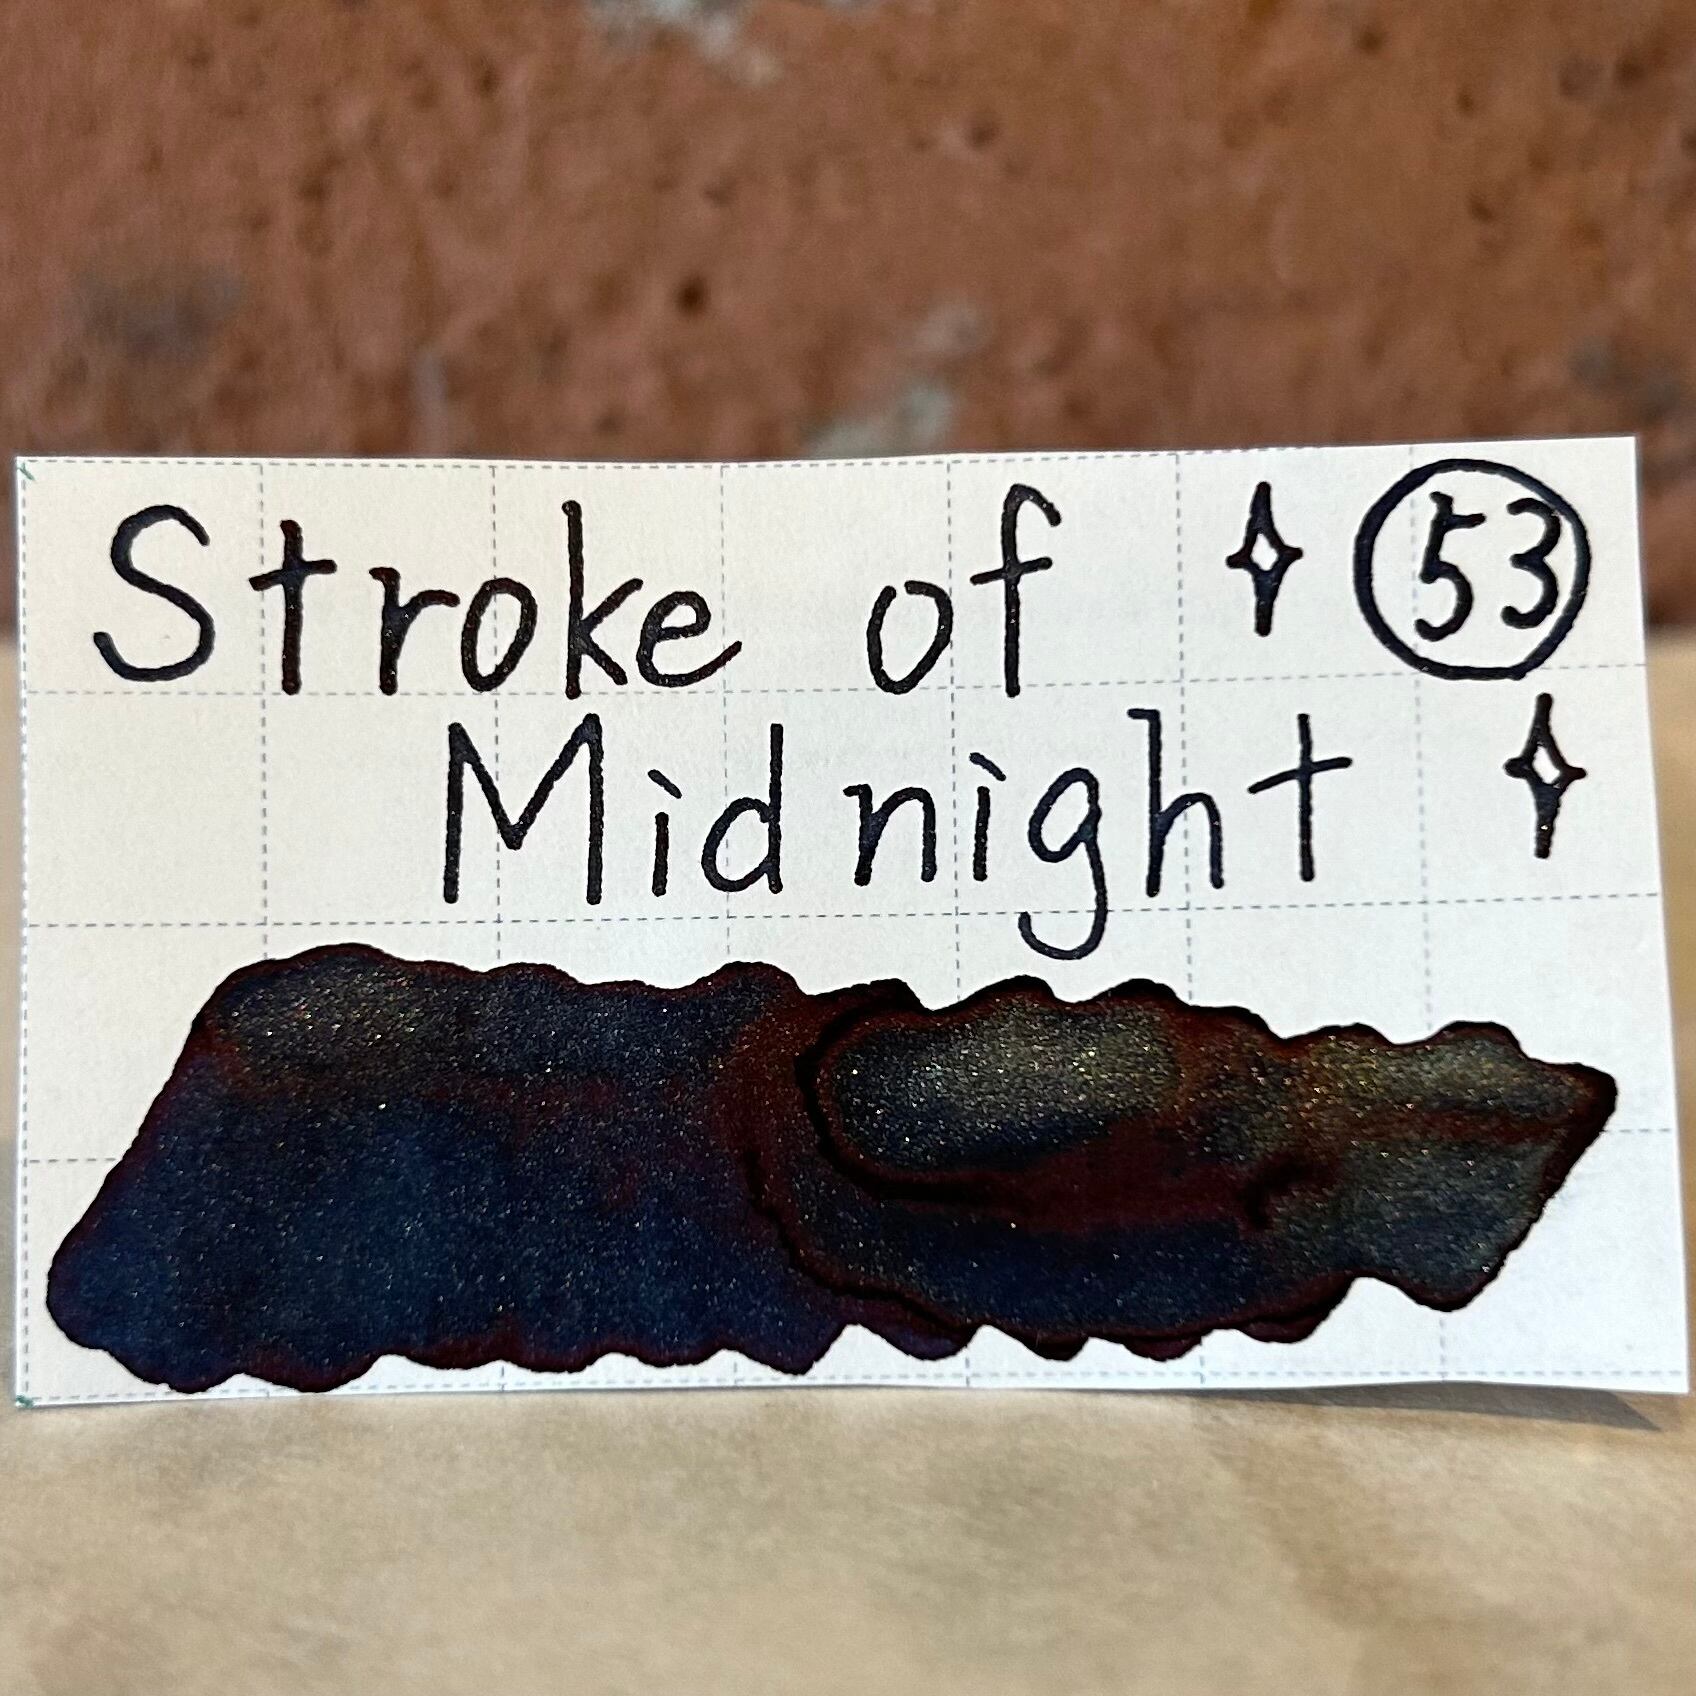 Stroke of 53
Midnight